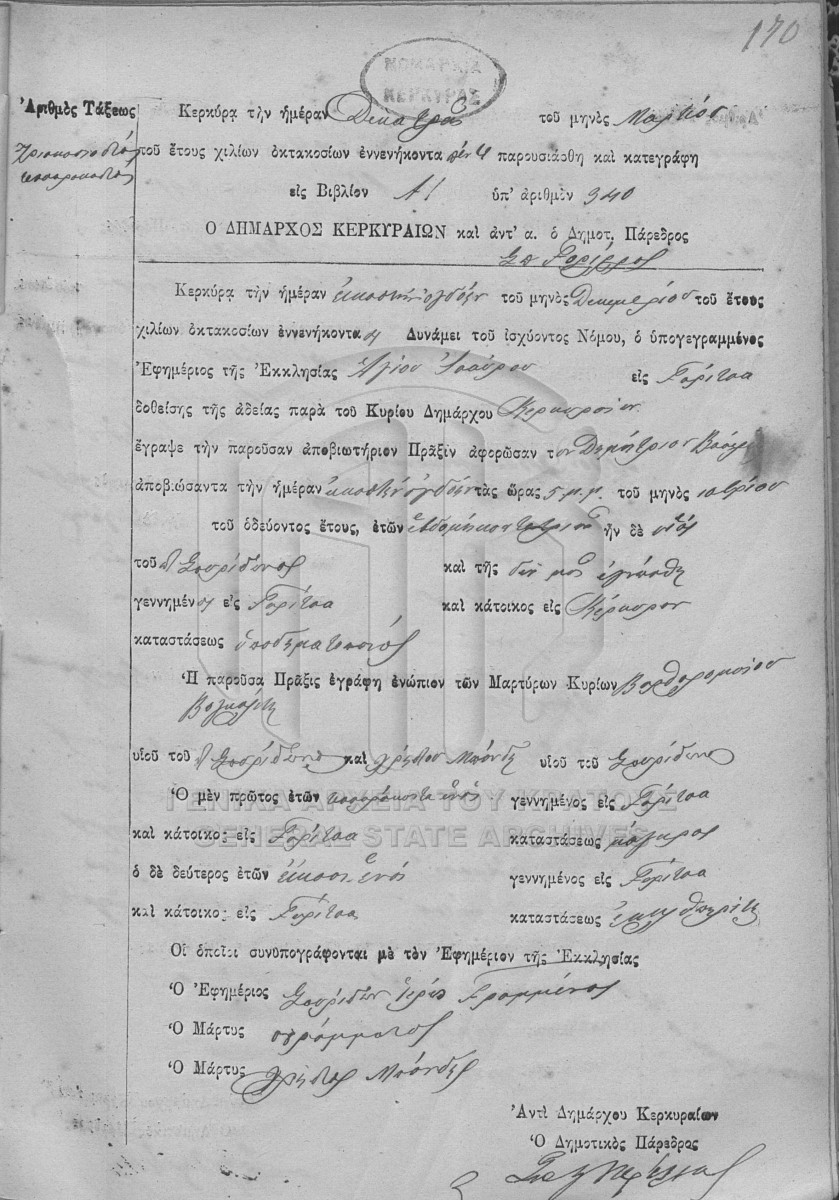 170
ΝΟΜΑΡΧΙΑ
ΚΕΡΚΥΡΑΣ
Ἀριθμὸς Τάξεως
Κερκύρᾳ τὴν ἡμέραν Δεκάτην τοῦ μηνὸς Μαρτίου
τοῦ ἔτους χιλίων ὀκτακοσίων ἐννενήκοντα παρουσιάσθη καὶ κατεγράφη
εἰς Βιβλίον Α1 ὑπ' ἀριθμὸν 340
Ο ΔΗΜΑΡΧΟΣ ΚΕΡΚΥΡΑΙΩΝ καὶ ἀντ' α. ὁ Δημοτ. Πάρεδρος
Κερκύρᾳ τὴν ἡμέραν εἰκοστὴν ὀγδόην τοῦ μηνὸς Δεκεμβρίου τοῦ ἔτους
χιλίων ὀκτακοσίων ἐννενήκοντα Δυνάμει τοῦ ἰσχύοντος Νόμου, ὁ ὑπογεγραμμένος
Ἐφημέριος τῆς Ἐκκλησίας Ἁγίου εἰς Γαρίτσα
δοθείσης τῆς ἀδείας παρὰ τοῦ Κυρίου Δημάρχου Κερκυραίων
ἔγραψε τὴν παροῦσαν ἀποβιωτήριον Πρᾶξιν ἀφορῶσαν τον Δημήτριον
ἀποβιώσαντα τὴν ἡμέραν εἰκοστὴν ὀγδόην τὰς ὥρας 5 μ.μ. τοῦ μηνὸς
τοῦ ὁδεύοντος ἔτους, ἐτῶν ἦν δὲ υἱὸς
τοῦ Σπυρίδωνος καὶ τῆς δὲν μᾶς ἐγνώσθη
γεννημένος εἰς Γαρίτσα καὶ κάτοικος εἰς Κέρκυραν
καταστάσεως ὑποδηματοποιός
Ἡ παροῦσα Πρᾶξις ἐγράφη ἐνώπιον τῶν Μαρτύρων Κυρίων Βαρθολομαίου
υἱοῦ τοῦ Σπυρίδωνος καὶ Χρήστου Μπόνδη υἱοῦ τοῦ Σπυρίδωνος
Ὁ μὲν πρῶτος ἐτῶν τεσσαράκοντα ἑνός γεννημένος εἰς Γαρίτσα
καὶ κάτοικος εἰς Γαρίτσα καταστάσεως μάγειρος
ὁ δὲ δεύτερος ἐτῶν εἴκοσι ἑνός γεννημένος εἰς Γαρίτσα
καὶ κάτοικος εἰς Γαρίτσα καταστάσεως
Οἱ ὁποῖοι συνυπογράφονται μὲ τὸν Ἐφημέριον τῆς Ἐκκλησίας
Ὁ Ἐφημέριος Σπυρίδων ἱερεὺς Γραμμένος
Ὁ Μάρτυς αγράμματος
Ὁ Μάρτυς Χρήστος Μπόνδης
Ἀντὶ Δημάρχου Κερκυραίων
Ὁ Δημοτικὸς Πάρεδρος
ΓΕΝΙΚΑ ΑΡΧΕΙΑ ΤΟΥ ΚΡΑΤΟΥΣ
GENERAL STATE ARCHIVES